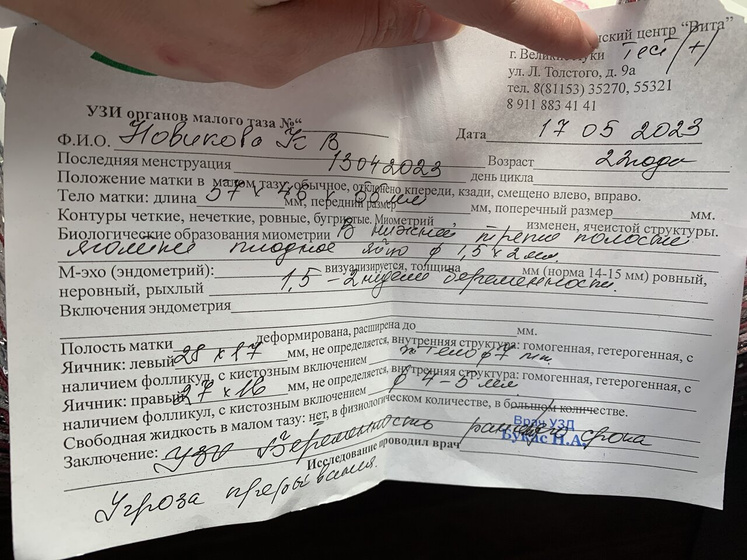 нский центр “Вита”
г. Великие Луки Тест (+)
ул. Л. Толстого, д. 9а
тел. 8(81153) 35270, 55321
8 911 883 41 41
УЗИ органов малого таза №“
Ф.И.О. Новикова К В Дата 17 05 2023
Последняя менструация 13 04 2023 Возраст 22 года
Положение матки в малом тазу: обычное, отклонено кпереди, кзади, смещено влево, вправо. день цикла
Тело матки: длина 57 × 46 × мм, передний размер мм, поперечный размер мм.
Контуры четкие, нечеткие, ровные, бугристые. Миометрий изменен, ячеистой структуры.
Биологические образования миометрии В нижней трети полости
плодное яйцо ф 1,5 × 2 мм.
М-эхо (эндометрий): визуализируется, толщина мм (норма 14-15 мм) ровный,
неровный, рыхлый 1,5 – 2 недели беременности.
Включения эндометрия
Полость матки деформирована, расширена до мм.
Яичник: левый 28 × 17 мм, не определяется, внутренняя структура: гомогенная, гетерогенная, с
наличием фолликул, с кистозным включением ж тело ф 7 мм.
Яичник: правый 27 × 16 мм, не определяется, внутренняя структура: гомогенная, гетерогенная, с
наличием фолликул, с кистозным включением ф 4 – 5 мм.
Свободная жидкость в малом тазу: нет, в физиологическом количестве, в большом количестве.
Заключение: УЗИ Беременность раннего срока
Врач УЗД
Букас Н.А.
Исследование проводил врач
Угроза прерывания.